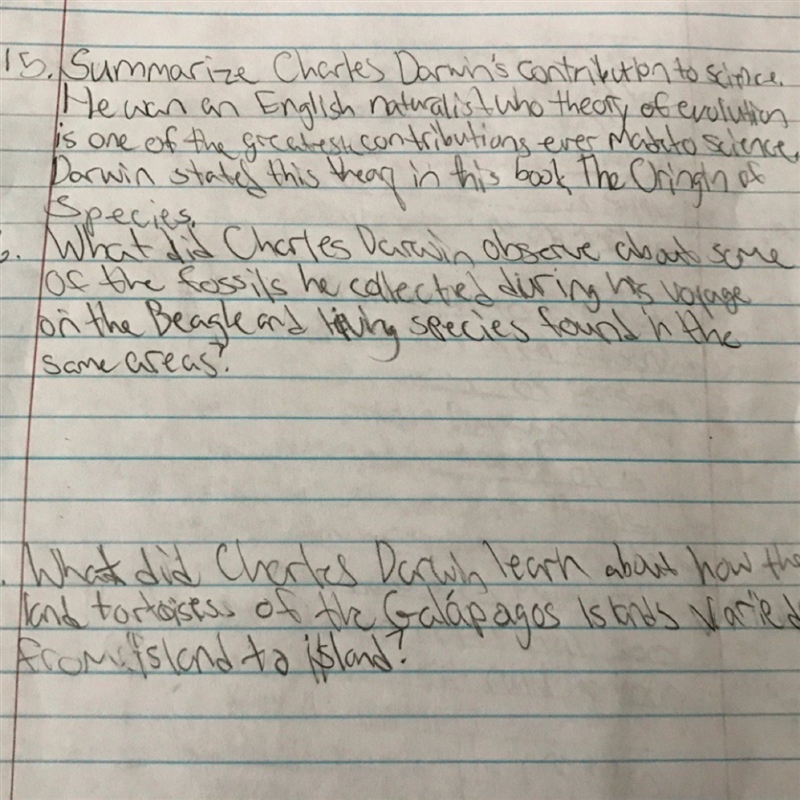 15. Summarize Charles Darwin's contribution to science.
He was an English naturalist who theory of evolution
is one of the greatest contributions ever Made to science,
Darwin stated this theory in this book, The Oringin of
Species.
6. What did Charles Darwin observe about some
Of the fossils he collected during his voyage
on the Beagle and living species found in the
same areas?
. What did Charles Darwin learn about how the
land tortoises of the Galápagos Islands Varied
from island to island?